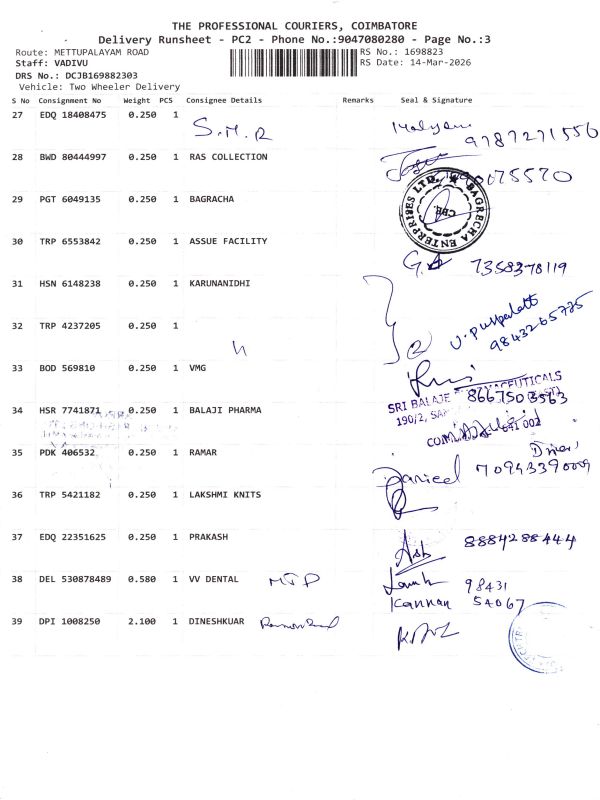 THE PROFESSIONAL COURIERS, COIMBATORE
Delivery Runsheet - PC2 - Phone No.:9047080280 - Page No.:3
Route: METTUPALAYAM ROAD RS No.: 1698823
Staff: VADIVU RS Date: 14-Mar-2026
DRS No.: DCJB169882303
Vehicle: Two Wheeler Delivery
S No Consignment No Weight PCS Consignee Details Remarks Seal & Signature
27 EDQ 18408475 0.250 1
S.M.R 9787271556
28 BWD 80444997 0.250 1 RAS COLLECTION
29 PGT 6049135 0.250 1 BAGRACHA
BAGRECHA ENTERPRISES LTD. CBE.
30 TRP 6553842 0.250 1 ASSUE FACILITY
7358378119
31 HSN 6148238 0.250 1 KARUNANIDHI
32 TRP 4237205 0.250 1
(2) 9843265735
33 BOD 569810 0.250 1 VMG
SRI BALAJE 8667503563
34 HSR 7741871 0.250 1 BALAJI PHARMA
190/2, 641 002
35 PDK 406532 0.250 1 RAMAR
Daniel
36 TRP 5421182 0.250 1 LAKSHMI KNITS
37 EDQ 22351625 0.250 1 PRAKASH
8884288444
38 DEL 530878489 0.580 1 VV DENTAL MTP 98431
Kannan 54067
39 DPI 1008250 2.100 1 DINESHKUAR